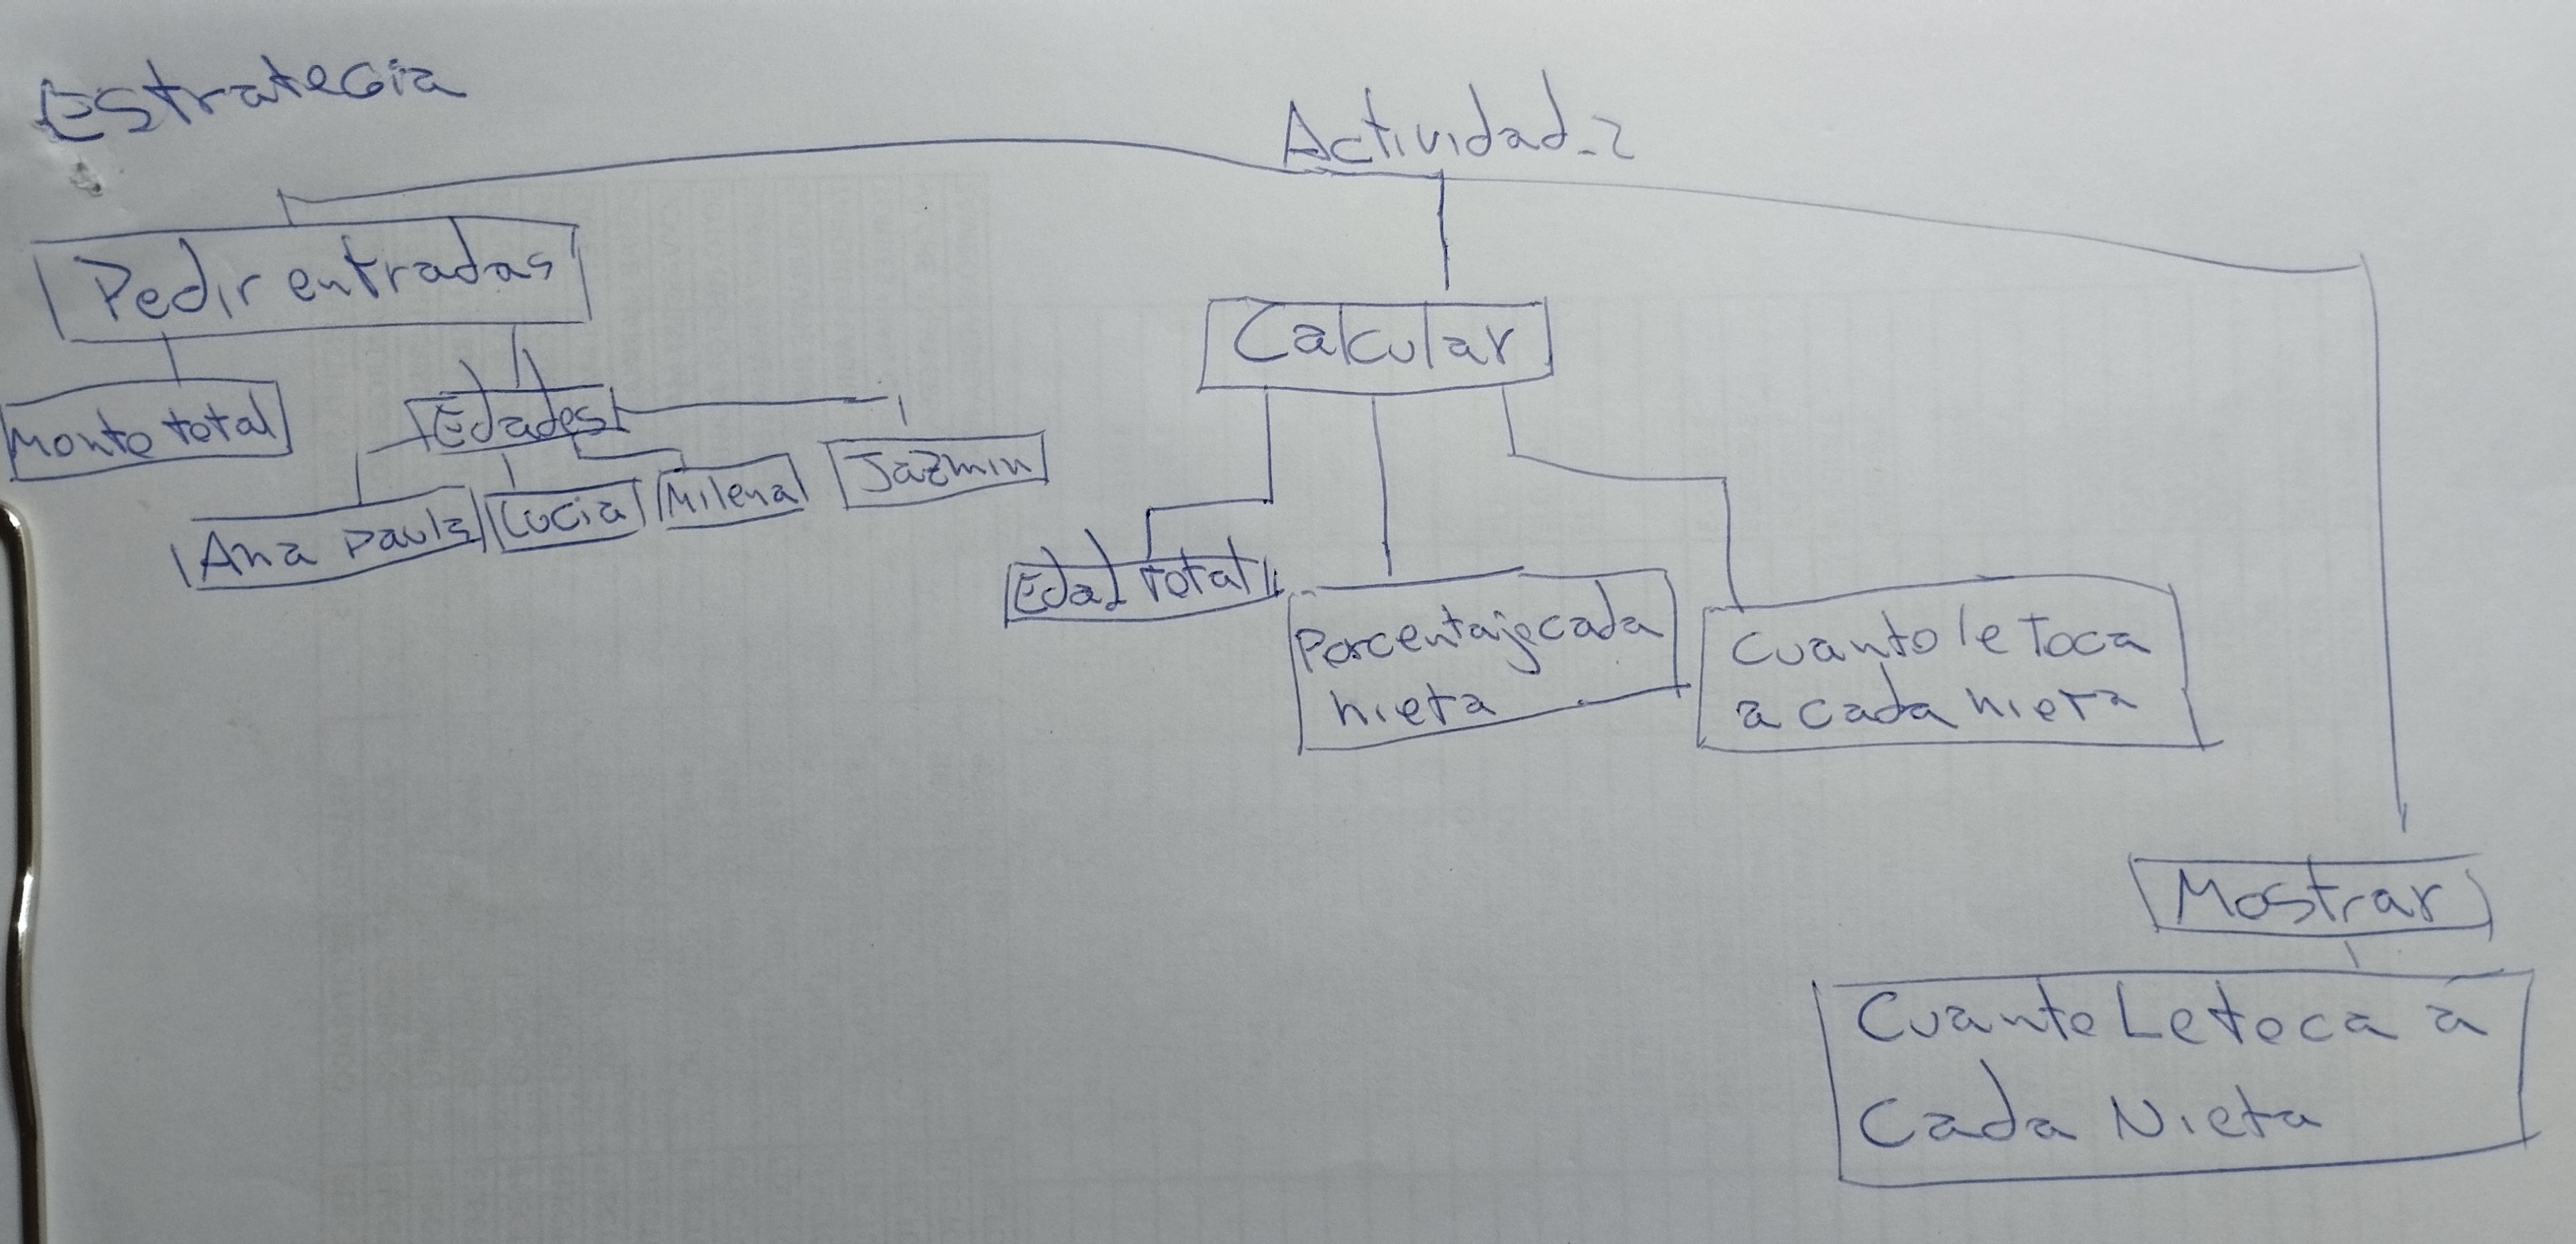 Estrategia
Actividad_2
Pedir entradas
Calcular
Monto total
Edades
Ana Paula
Lucia
Milena
Jazmin
Edad total
Porcentaje cada
nieta
Cuanto le Toca
a cada nieta
Mostrar
Cuanto Le toca a
Cada Nieta